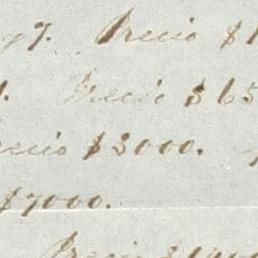 7. Precio $1
Precio $65
cio $3000.
$7000.
Precio $1